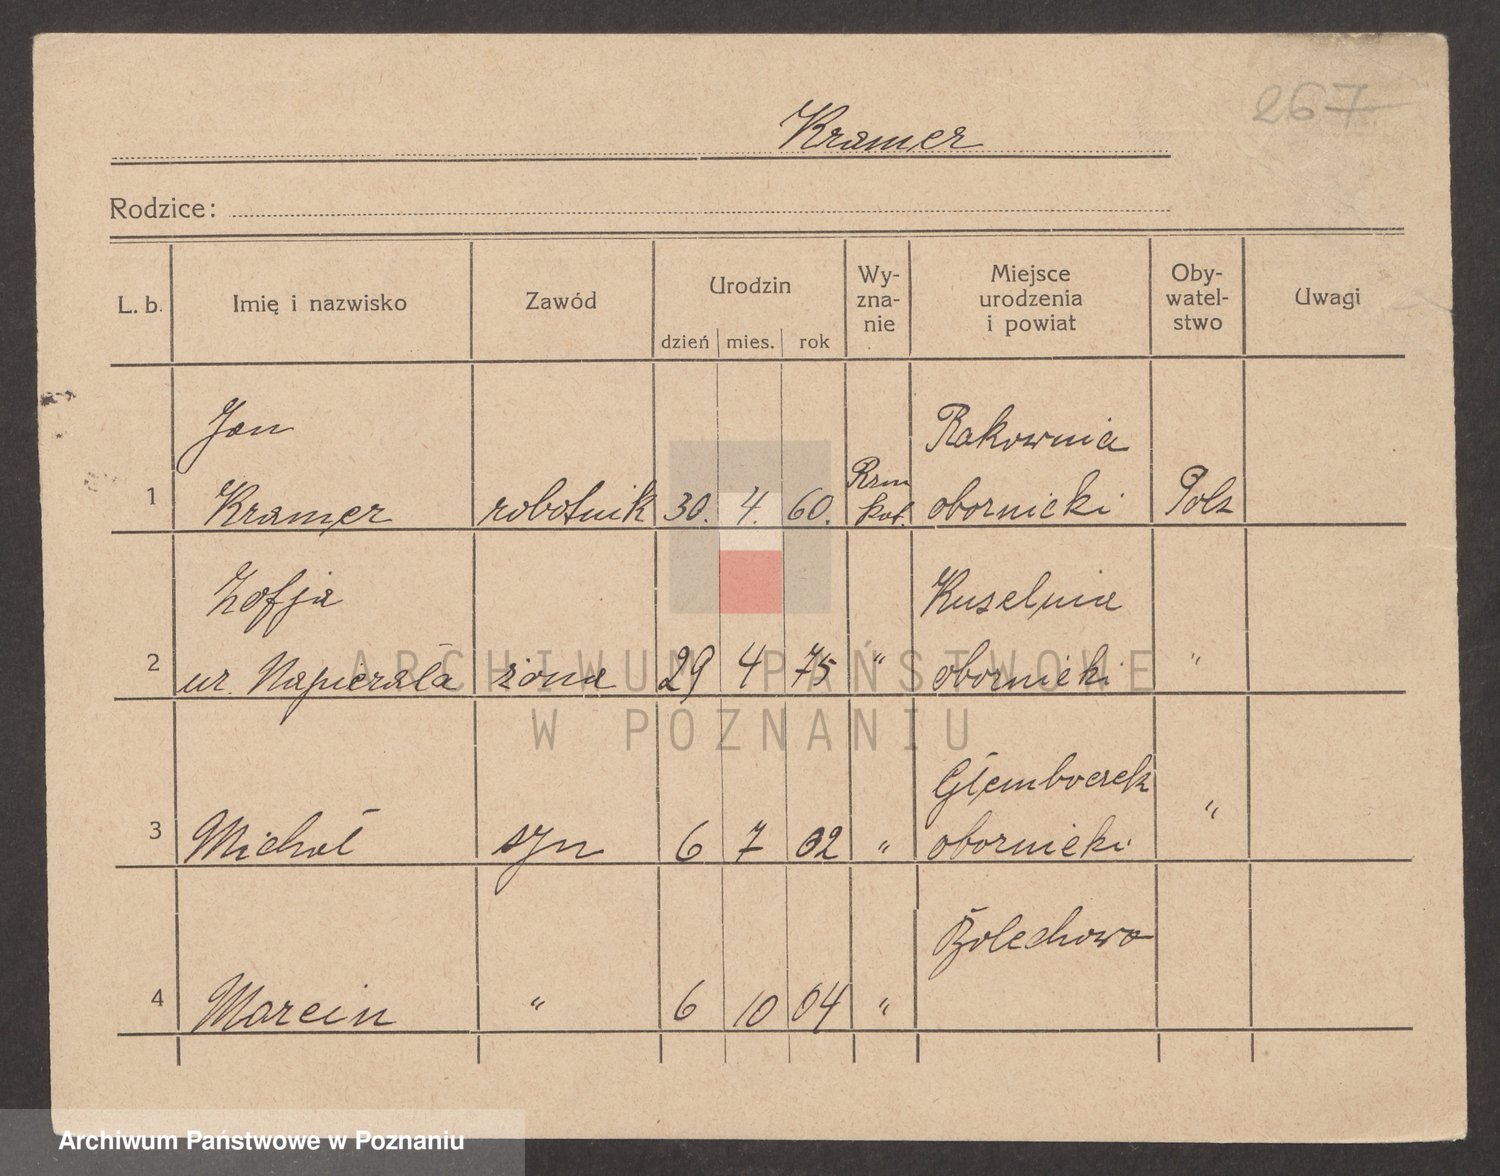 267
Kramer
Rodzice:
L. b.
Imię i nazwisko
Zawód
Urodzin
dzień mies. rok
Wy-
zna-
nie
Miejsce
urodzenia
i powiat
Oby-
watel-
stwo
Uwagi
1
Jan
Kramer
robotnik
30. 4. 60.
Rzm
kat.
Rakownia
obornicki
Pols
2
Zofja
ur. Napierała
żona
29 4 75
"
obornicki
"
3
Michał
syn
6 7 02
"
Głemboczek
obornicki
"
4
Marcin
"
6 10 04
"
Bolechowo
ARCHIWUM PAŃSTWOWE
W POZNANIU
Archiwum Państwowe w Poznaniu